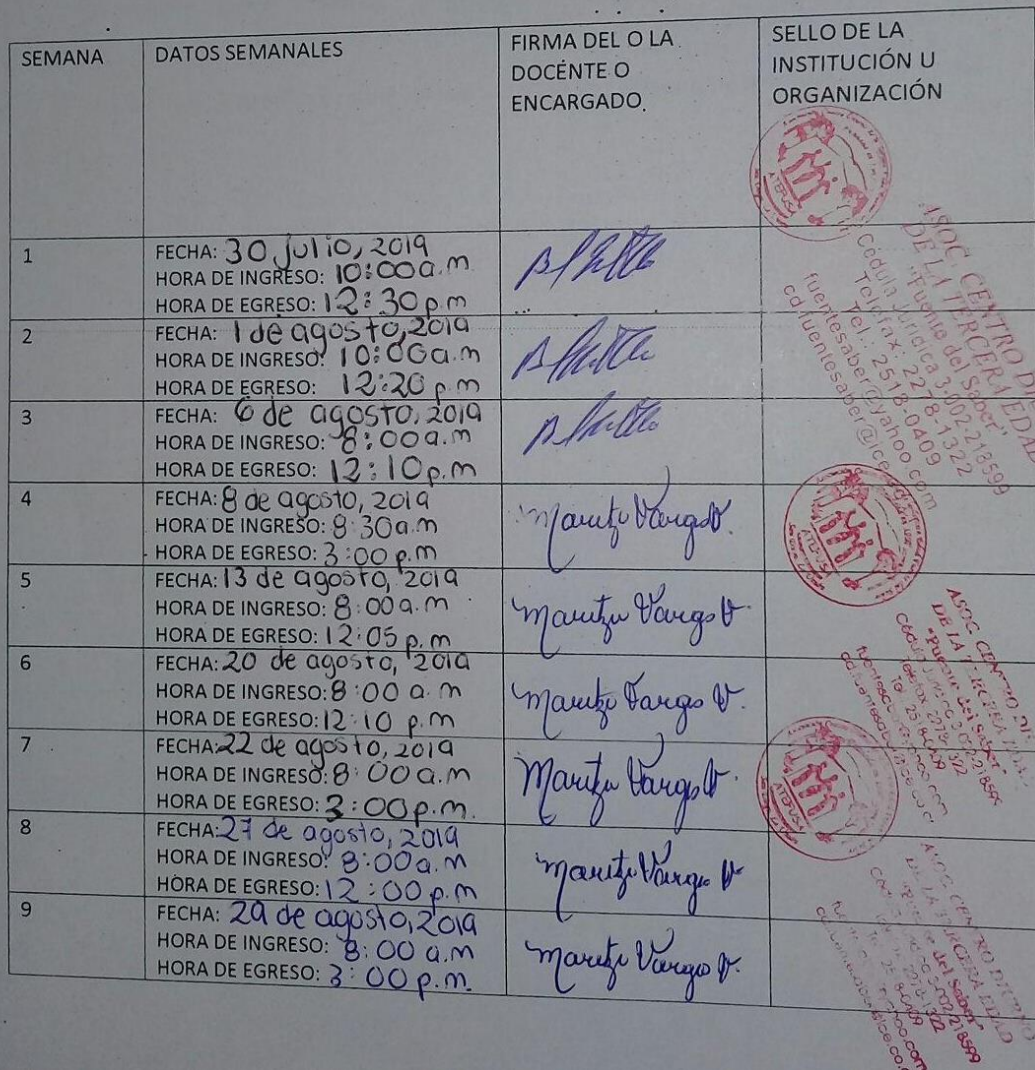 SEMANA
DATOS SEMANALES
FIRMA DEL O LA
DOCENTE O
ENCARGADO.
SELLO DE LA
INSTITUCIÓN U
ORGANIZACIÓN
ATEFUSA
ASOC. CENTRO
DE LA TERCERA EDAD
"Fuente del Saber"
Cédula Jurídica 3-002-218599
Telefax: 2278-1322
Tel.: 2518-0409
fuentesaber@yahoo.com
cdfuentesaber@ice
1
FECHA: 30 julio, 2019
HORA DE INGRESO: 10:00 a.m
HORA DE EGRESO: 12:30 p.m
2
FECHA: 1 de agosto, 2019
HORA DE INGRESO: 10:00 a.m
HORA DE EGRESO: 12:20 p.m
3
FECHA: 6 de agosto, 2019
HORA DE INGRESO: 8:00 a.m
HORA DE EGRESO: 12:10 p.m
4
FECHA: 8 de agosto, 2019
HORA DE INGRESO: 8:30 a.m
HORA DE EGRESO: 3:00 p.m
Maritza Vargas V.
ATEFUSA
5
FECHA: 13 de agosto, 2019
HORA DE INGRESO: 8:00 a.m
HORA DE EGRESO: 12:05 p.m
Maritza Vargas V
6
FECHA: 20 de agosto, 2019
HORA DE INGRESO: 8:00 a.m
HORA DE EGRESO: 12:10 p.m
Maritza Vargas V.
7
FECHA: 22 de agosto, 2019
HORA DE INGRESO: 8:00 a.m
HORA DE EGRESO: 3:00 p.m.
Maritza Vargas V.
ATEFUSA
8
FECHA: 27 de agosto, 2019
HORA DE INGRESO: 8:00 a.m
HORA DE EGRESO: 12:00 p.m
Maritza Vargas V
9
FECHA: 29 de agosto, 2019
HORA DE INGRESO: 8:00 a.m
HORA DE EGRESO: 3:00 p.m.
Maritza Vargas V.